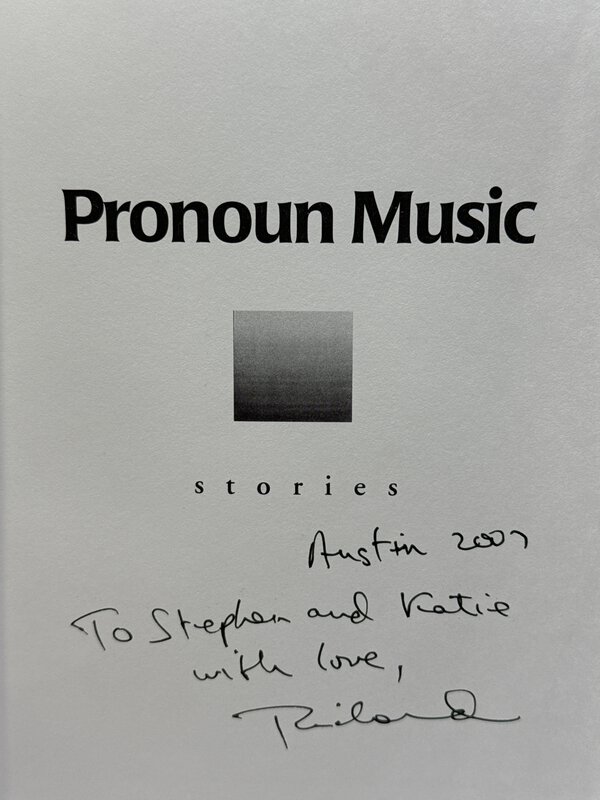 Pronoun Music
stories
Austin 2007
To Stephen and Katie
with love,
Richard